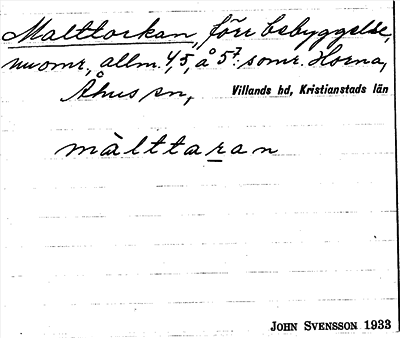 Malttorkan, förr bebyggelse,
nuomr., allm. 45, å 5⁷. somr. Horna,
Åhus sn, Villands hd, Kristianstads län
màlttaran
JOHN SVENSSON 1933